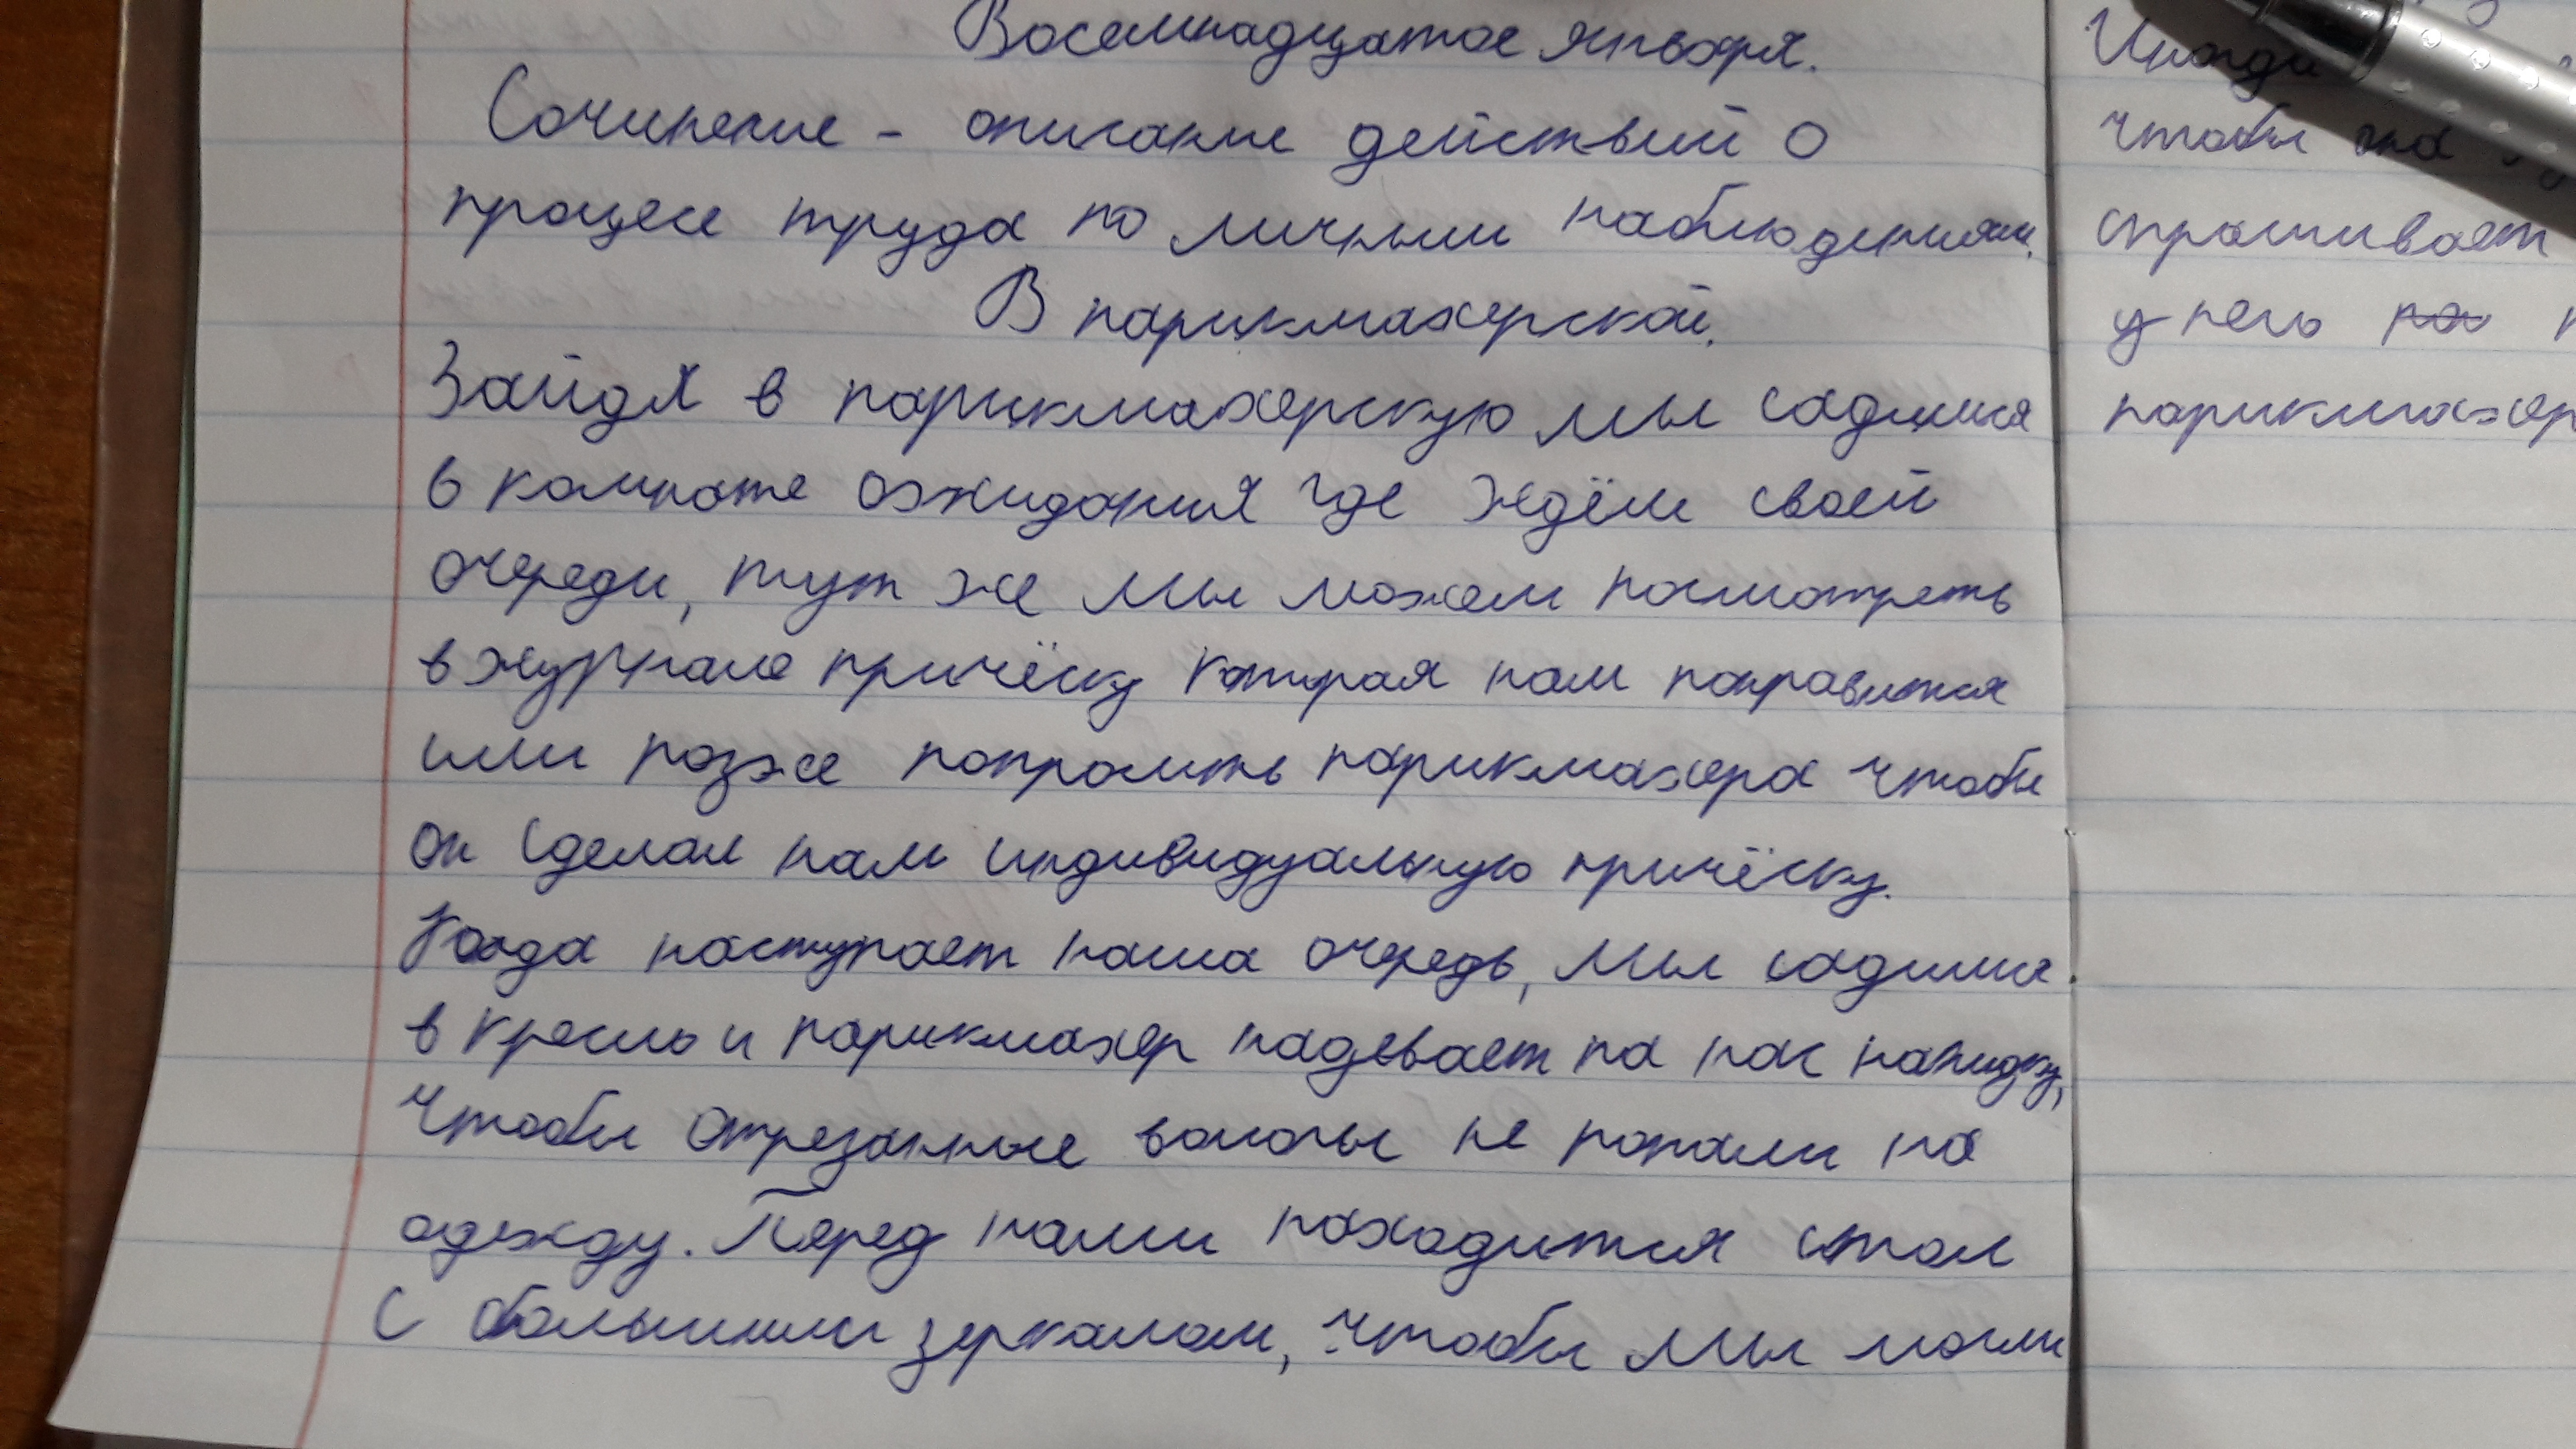 Восемнадцатое января.
Сочинение - описание действий о
процесе труда по личным наблюдениям.
В парикмахерской.
Зайдя в парикмахерскую мы садимся
в комнате ожидания где ждём своей
очереди, тут же мы можем посмотреть
в журнале причёску которая нам понравится
или позже попросить парикмахера чтобы
он сделал нам индивидуальную причёску.
Когда наступает наша очередь, мы садимся
в кресло и парикмахер надевает на нас накидку,
чтобы отрезанные волосы не попали на
одежду. Перед нами находится стол
с большим зеркалом, чтобы мы могли
чтобы она
спрашивает
у него на
парикмахер